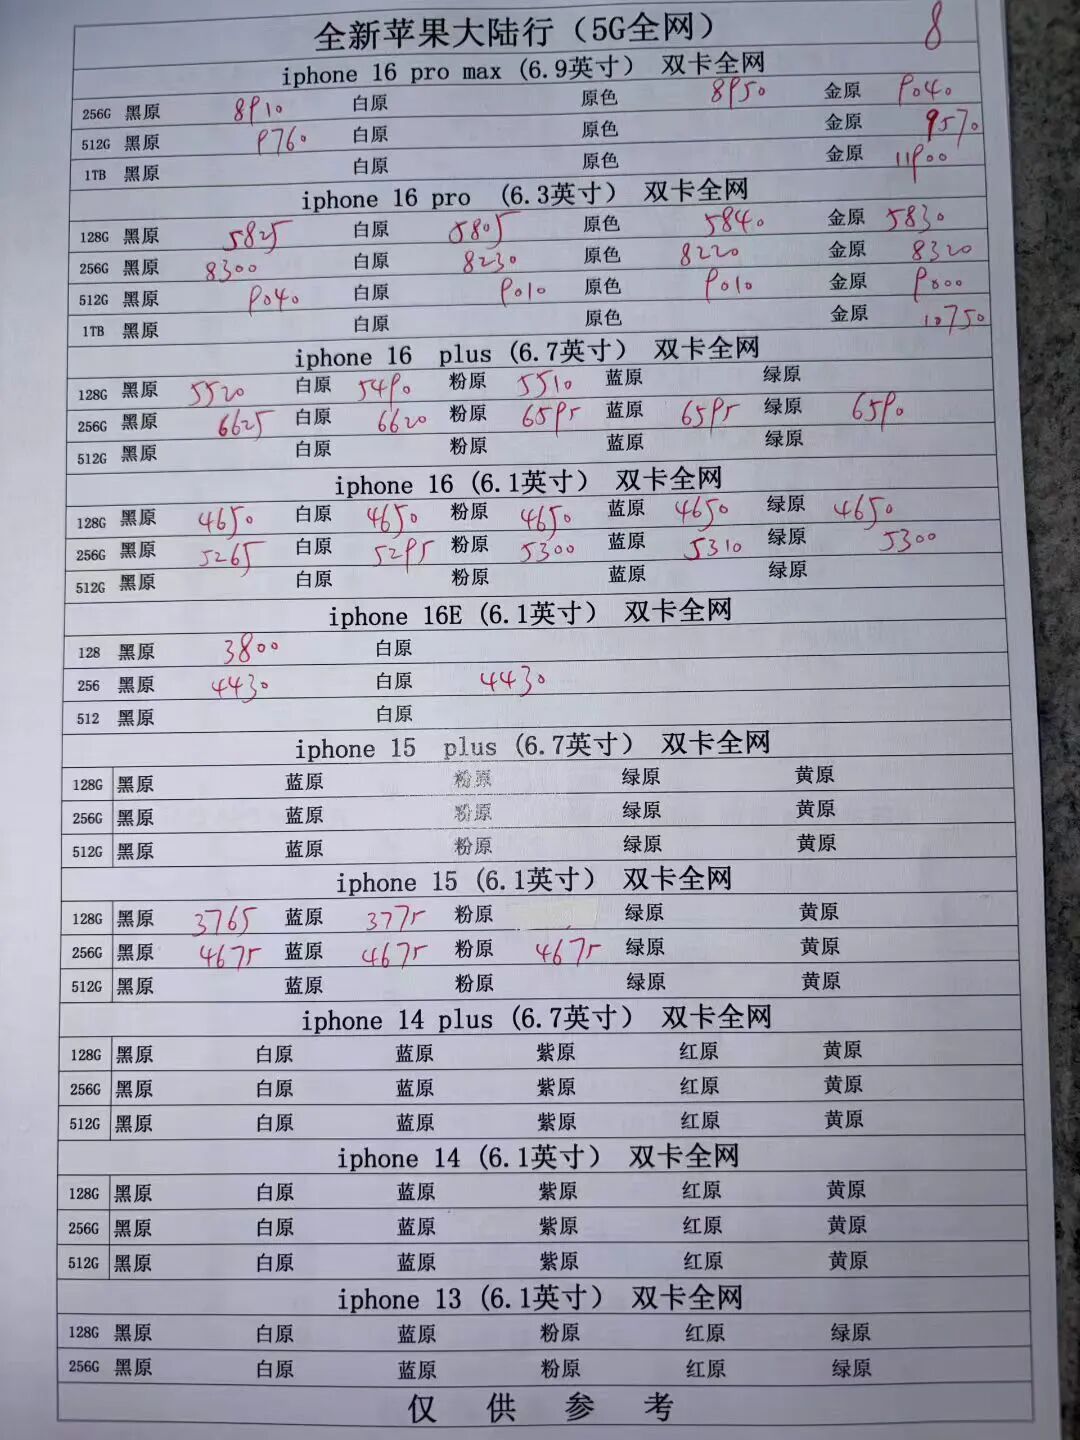 全新苹果大陆行（5G全网） 8
iphone 16 pro max (6.9英寸） 双卡全网
256G 黑原 8910 白原 原色 8950 金原 9040
512G 黑原 9760 白原 原色 金原 9570
1TB 黑原 白原 原色 金原 11900
iphone 16 pro （6.3英寸） 双卡全网
128G 黑原 5825 白原 5805 原色 5840 金原 5830
256G 黑原 8300 白原 8230 原色 8220 金原 8320
512G 黑原 9040 白原 9010 原色 9010 金原 9000
1TB 黑原 白原 原色 金原 10750
iphone 16 plus (6.7英寸） 双卡全网
128G 黑原 5520 白原 5490 粉原 5510 蓝原 绿原
256G 黑原 6625 白原 6620 粉原 6595 蓝原 6595 绿原 6590
512G 黑原 白原 粉原 蓝原 绿原
iphone 16 (6.1英寸） 双卡全网
128G 黑原 4650 白原 4650 粉原 4650 蓝原 4650 绿原 4650
256G 黑原 5265 白原 5295 粉原 5300 蓝原 5310 绿原 5300
512G 黑原 白原 粉原 蓝原 绿原
iphone 16E (6.1英寸） 双卡全网
128 黑原 3800 白原
256 黑原 4430 白原 4430
512 黑原 白原
iphone 15 plus (6.7英寸） 双卡全网
128G 黑原 蓝原 粉原 绿原 黄原
256G 黑原 蓝原 粉原 绿原 黄原
512G 黑原 蓝原 粉原 绿原 黄原
iphone 15 (6.1英寸） 双卡全网
128G 黑原 3765 蓝原 3775 粉原 绿原 黄原
256G 黑原 4675 蓝原 4675 粉原 4675 绿原 黄原
512G 黑原 蓝原 粉原 绿原 黄原
iphone 14 plus (6.7英寸） 双卡全网
128G 黑原 白原 蓝原 紫原 红原 黄原
256G 黑原 白原 蓝原 紫原 红原 黄原
512G 黑原 白原 蓝原 紫原 红原 黄原
iphone 14 (6.1英寸） 双卡全网
128G 黑原 白原 蓝原 紫原 红原 黄原
256G 黑原 白原 蓝原 紫原 红原 黄原
512G 黑原 白原 蓝原 紫原 红原 黄原
iphone 13 (6.1英寸） 双卡全网
128G 黑原 白原 蓝原 粉原 红原 绿原
256G 黑原 白原 蓝原 粉原 红原 绿原
仅供参考